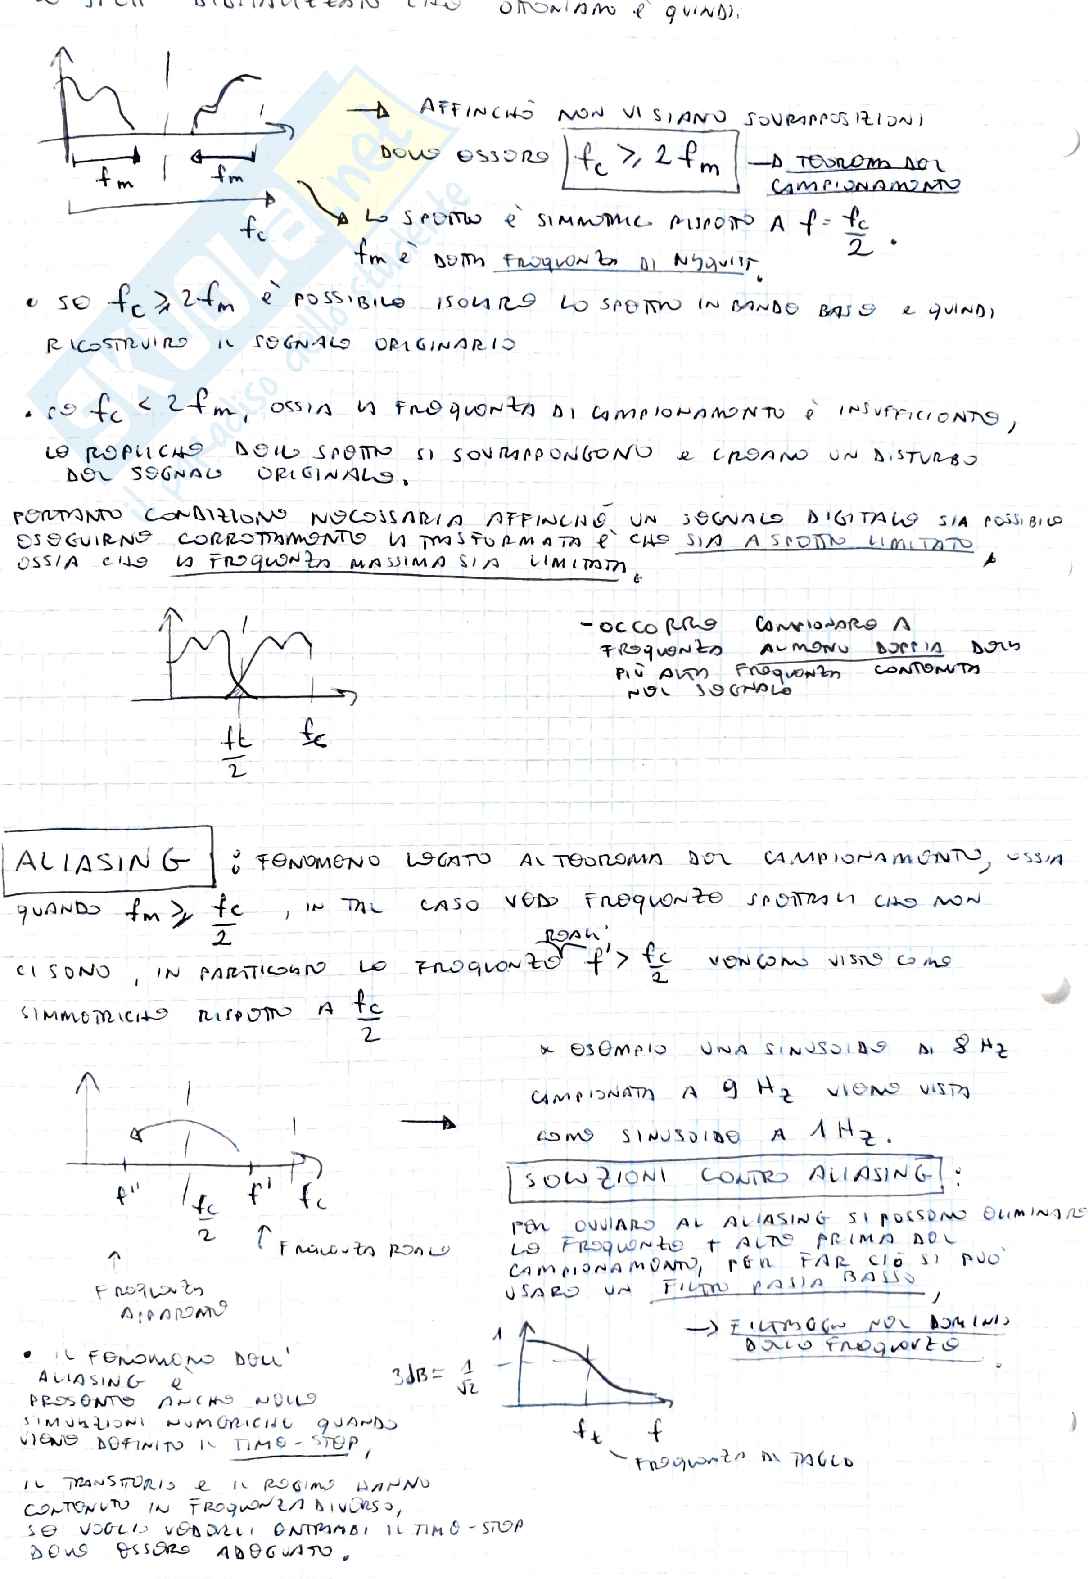 LO SPETTRO DIGITALIZZATO CHE OTTENIAMO è QUINDI:
→ AFFINCHÈ NON VI SIANO SOVRAPPOSIZIONI
DEVE ESSERE fc ⩾ 2fm → TEOREMA DEL
CAMPIONAMENTO
fm fm
fc
LO SPETTRO È SIMMETRIC RISPETTO A f = fc/2.
fm È DETTA FREQUENZA DI NYQUIST.
• SE fc ⩾ 2fm è POSSIBILE ISOLARE LO SPETTRO IN BANDO BASE e QUINDI
RICOSTRUIRE IL SEGNALE ORIGINARIO
• SE fc < 2fm, OSSIA LA FREQUENZA DI CAMPIONAMENTO è INSUFFICIENTE,
LE REPLICHE DELLO SPETTRO SI SOVRAPPONGONO e CREANO UN DISTURBO
DEL SEGNALE ORIGINALE.
PERTANTO CONDIZIONE NECESSARIA AFFINCHÉ UN SEGNALE DIGITALE SIA POSSIBILE
ESEGUIRNE CORRETTAMENTE LA TRASFORMATA È CHE SIA A SPETTRO LIMITATO,
OSSIA CHE LA FREQUENZA MASSIMA SIA LIMITATA.
- OCCORRE CAMPIONARE A
FREQUENZA ALMENO DOPPIA DELLA
PIÙ ALTA FREQUENZA CONTENUTA
NEL SEGNALE
ft/2 fc
ALIASING : FENOMENO LEGATO AL TEOREMA DEL CAMPIONAMENTO, OSSIA
QUANDO fm ⩾ fc/2, IN TAL CASO VEDO FREQUENZE SPETTRALI CHE NON
REALI
CI SONO, IN PARTICOLARE LE FREQUENZE f' > fc/2 VENGONO VISTE COME
SIMMETRICHE RISPETTO A fc/2
* ESEMPIO UNA SINUSOIDE DI 8 Hz
CAMPIONATA A 9 Hz VIENE VISTA
COME SINUSOIDE A 1 Hz.
f'' fc/2 f' fc
↑ FREQUENZA REALE
↑
FREQUENZA
APPARENTE
SOLUZIONI CONTRO ALIASING :
PER OVVIARE AL ALIASING SI POSSONO ELIMINARE
LE FREQUENZE + ALTE PRIMA DEL
CAMPIONAMENTO, PER FAR CIÒ SI PUÒ
USARE UN FILTRO PASSA BASSO,
→ FILTRAGGIO NEL DOMINIO
DELLE FREQUENZE.
1
3dB = 1/√2
ft f
FREQUENZA DI TAGLIO
• IL FENOMENO DELL'
ALIASING È
PRESENTE ANCHE NELLE
SIMULAZIONI NUMERICHE QUANDO
VIENE DEFINITO IL TIME-STEP,
IL TRANSITORIO e IL REGIME HANNO
CONTENUTO IN FREQUENZA DIVERSO,
SE VOGLIO VEDERLI ENTRAMBI IL TIME-STEP
DEVE ESSERE ADEGUATO.
SKUOLA.net
il paradiso dello studente